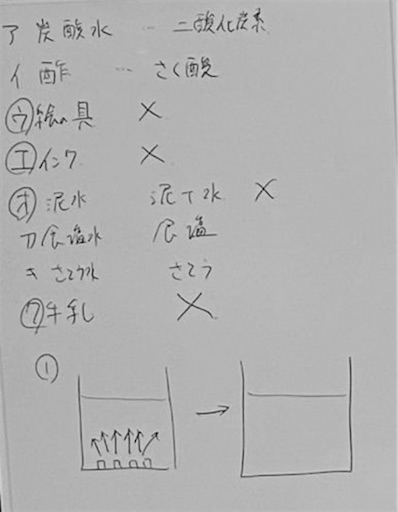 ア 炭酸水 … 二酸化炭素
イ 酢 … さく酸
ウ 絵の具 ×
エ インク ×
オ 泥水 泥て水 ×
カ 食塩水 食塩
キ さとう水 さとう
ク 牛乳 ×
①